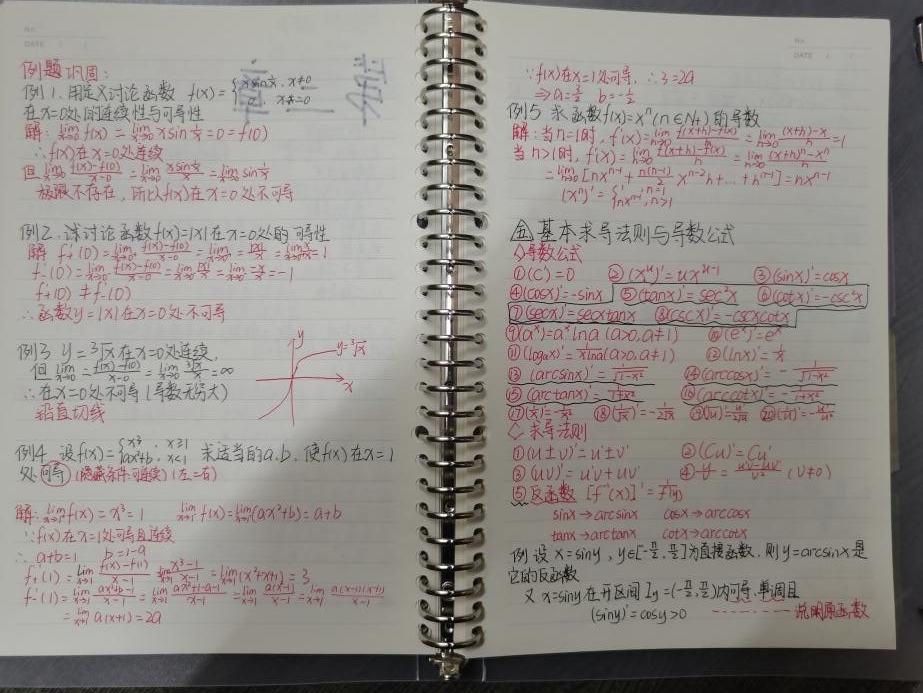 例题巩固:
例1. 用定义讨论函数 f(x)={xsin1/x, x≠0
0, x=0
在x=0处的连续性与可导性
解: lim x→0 f(x) = lim x→0 xsin1/x = 0 = f(0)
∴f(x)在x=0处连续
但 lim x→0 (f(x)-f(0))/(x-0) = lim x→0 (xsin1/x)/x = lim x→0 sin1/x
极限不存在, 所以f(x)在x=0处不可导
例2. 试讨论函数f(x)=|x|在x=0处的可导性
解 f+'(0) = lim x→0+ (f(x)-f(0))/(x-0) = lim x→0+ |x|/x = lim x→0+ x/x = 1
f-'(0) = lim x→0- (f(x)-f(0))/(x-0) = lim x→0- |x|/x = lim x→0- -x/x = -1
f+'(0) ≠ f-'(0)
∴函数y=|x|在x=0处不可导
例3 y=³√x在x=0处连续,
但 lim x→0 (f(x)-f(0))/(x-0) = lim x→0 ³√x/x = ∞
∴在x=0处不可导(导数无穷大)
铅直切线
y
y=³√x
x
例4. 设f(x)={x³, x≥1
ax²+b, x<1 求适当的a.b, 使f(x)在x=1
处可导 (隐藏条件:可连续) (左=右)
解: lim x→1+ f(x) = x³ = 1 lim x→1- f(x) = lim x→1- (ax²+b) = a+b
∵f(x)在x=1处可导且连续
∴ a+b=1 b=1-a
f+'(1) = lim x→1 (f(x)-f(1))/(x-1) = lim x→1 (x³-1)/(x-1) = lim x→1 (x²+x+1) = 3
f-'(1) = lim x→1 (ax²+b-1)/(x-1) = lim x→1 (ax²+1-a-1)/(x-1) = lim x→1 a(x²-1)/(x-1) = lim x→1 a(x-1)(x+1)/(x-1)
= lim x→1 a(x+1) = 2a
∵f(x)在x=1处可导, ∴3=2a
⇒a=3/2 b=-1/2
例5 求函数f(x)=xⁿ(n∈N+)的导数
解: 当n=1时, f'(x) = lim h→0 (f(x+h)-f(x))/h = lim h→0 ((x+h)-x)/h = 1
当n>1时, f'(x) = lim h→0 (f(x+h)-f(x))/h = lim h→0 ((x+h)ⁿ-xⁿ)/h
= lim h→0 [nxⁿ⁻¹ + n(n-1)/2 xⁿ⁻²h + ... + hⁿ⁻¹] = nxⁿ⁻¹
(xⁿ)' = {1, n=1
nxⁿ⁻¹, n>1
基本求导法则与导数公式
◇导数公式
①(C)'=0 ②(x^u)'=ux^(u-1) ③(sinx)'=cosx
④(cosx)'=-sinx ⑤(tanx)'=sec²x ⑥(cotx)'=-csc²x
⑦(secx)'=secxtanx ⑧(cscx)'=-cscxcotx
⑨(aˣ)'=aˣlna (a>0,a≠1) ⑩(eˣ)'=eˣ
⑪(logₐx)'=1/(xlna)(a>0,a≠1) ⑫(lnx)'=1/x
⑬(arcsinx)'=1/√(1-x²) ⑭(arccosx)'=-1/√(1-x²)
⑮(arctanx)'=1/(1+x²) ⑯(arccotx)'=-1/(1+x²)
◇求导法则
①(u±v)'=u'±v' ②(Cu)'=Cu'
③(uv)'=u'v+uv'
⑤反函数
sinx→arcsinx cosx→arccosx
tanx→arctanx cotx→arccotx
例 设x=siny, y∈[-π/2,π/2]为直接函数, 则y=arcsinx是
它的反函数
又x=siny在开区间Iy=(-π/2,π/2)内可导.单调且
(siny)'=cosy>0 说明原函数